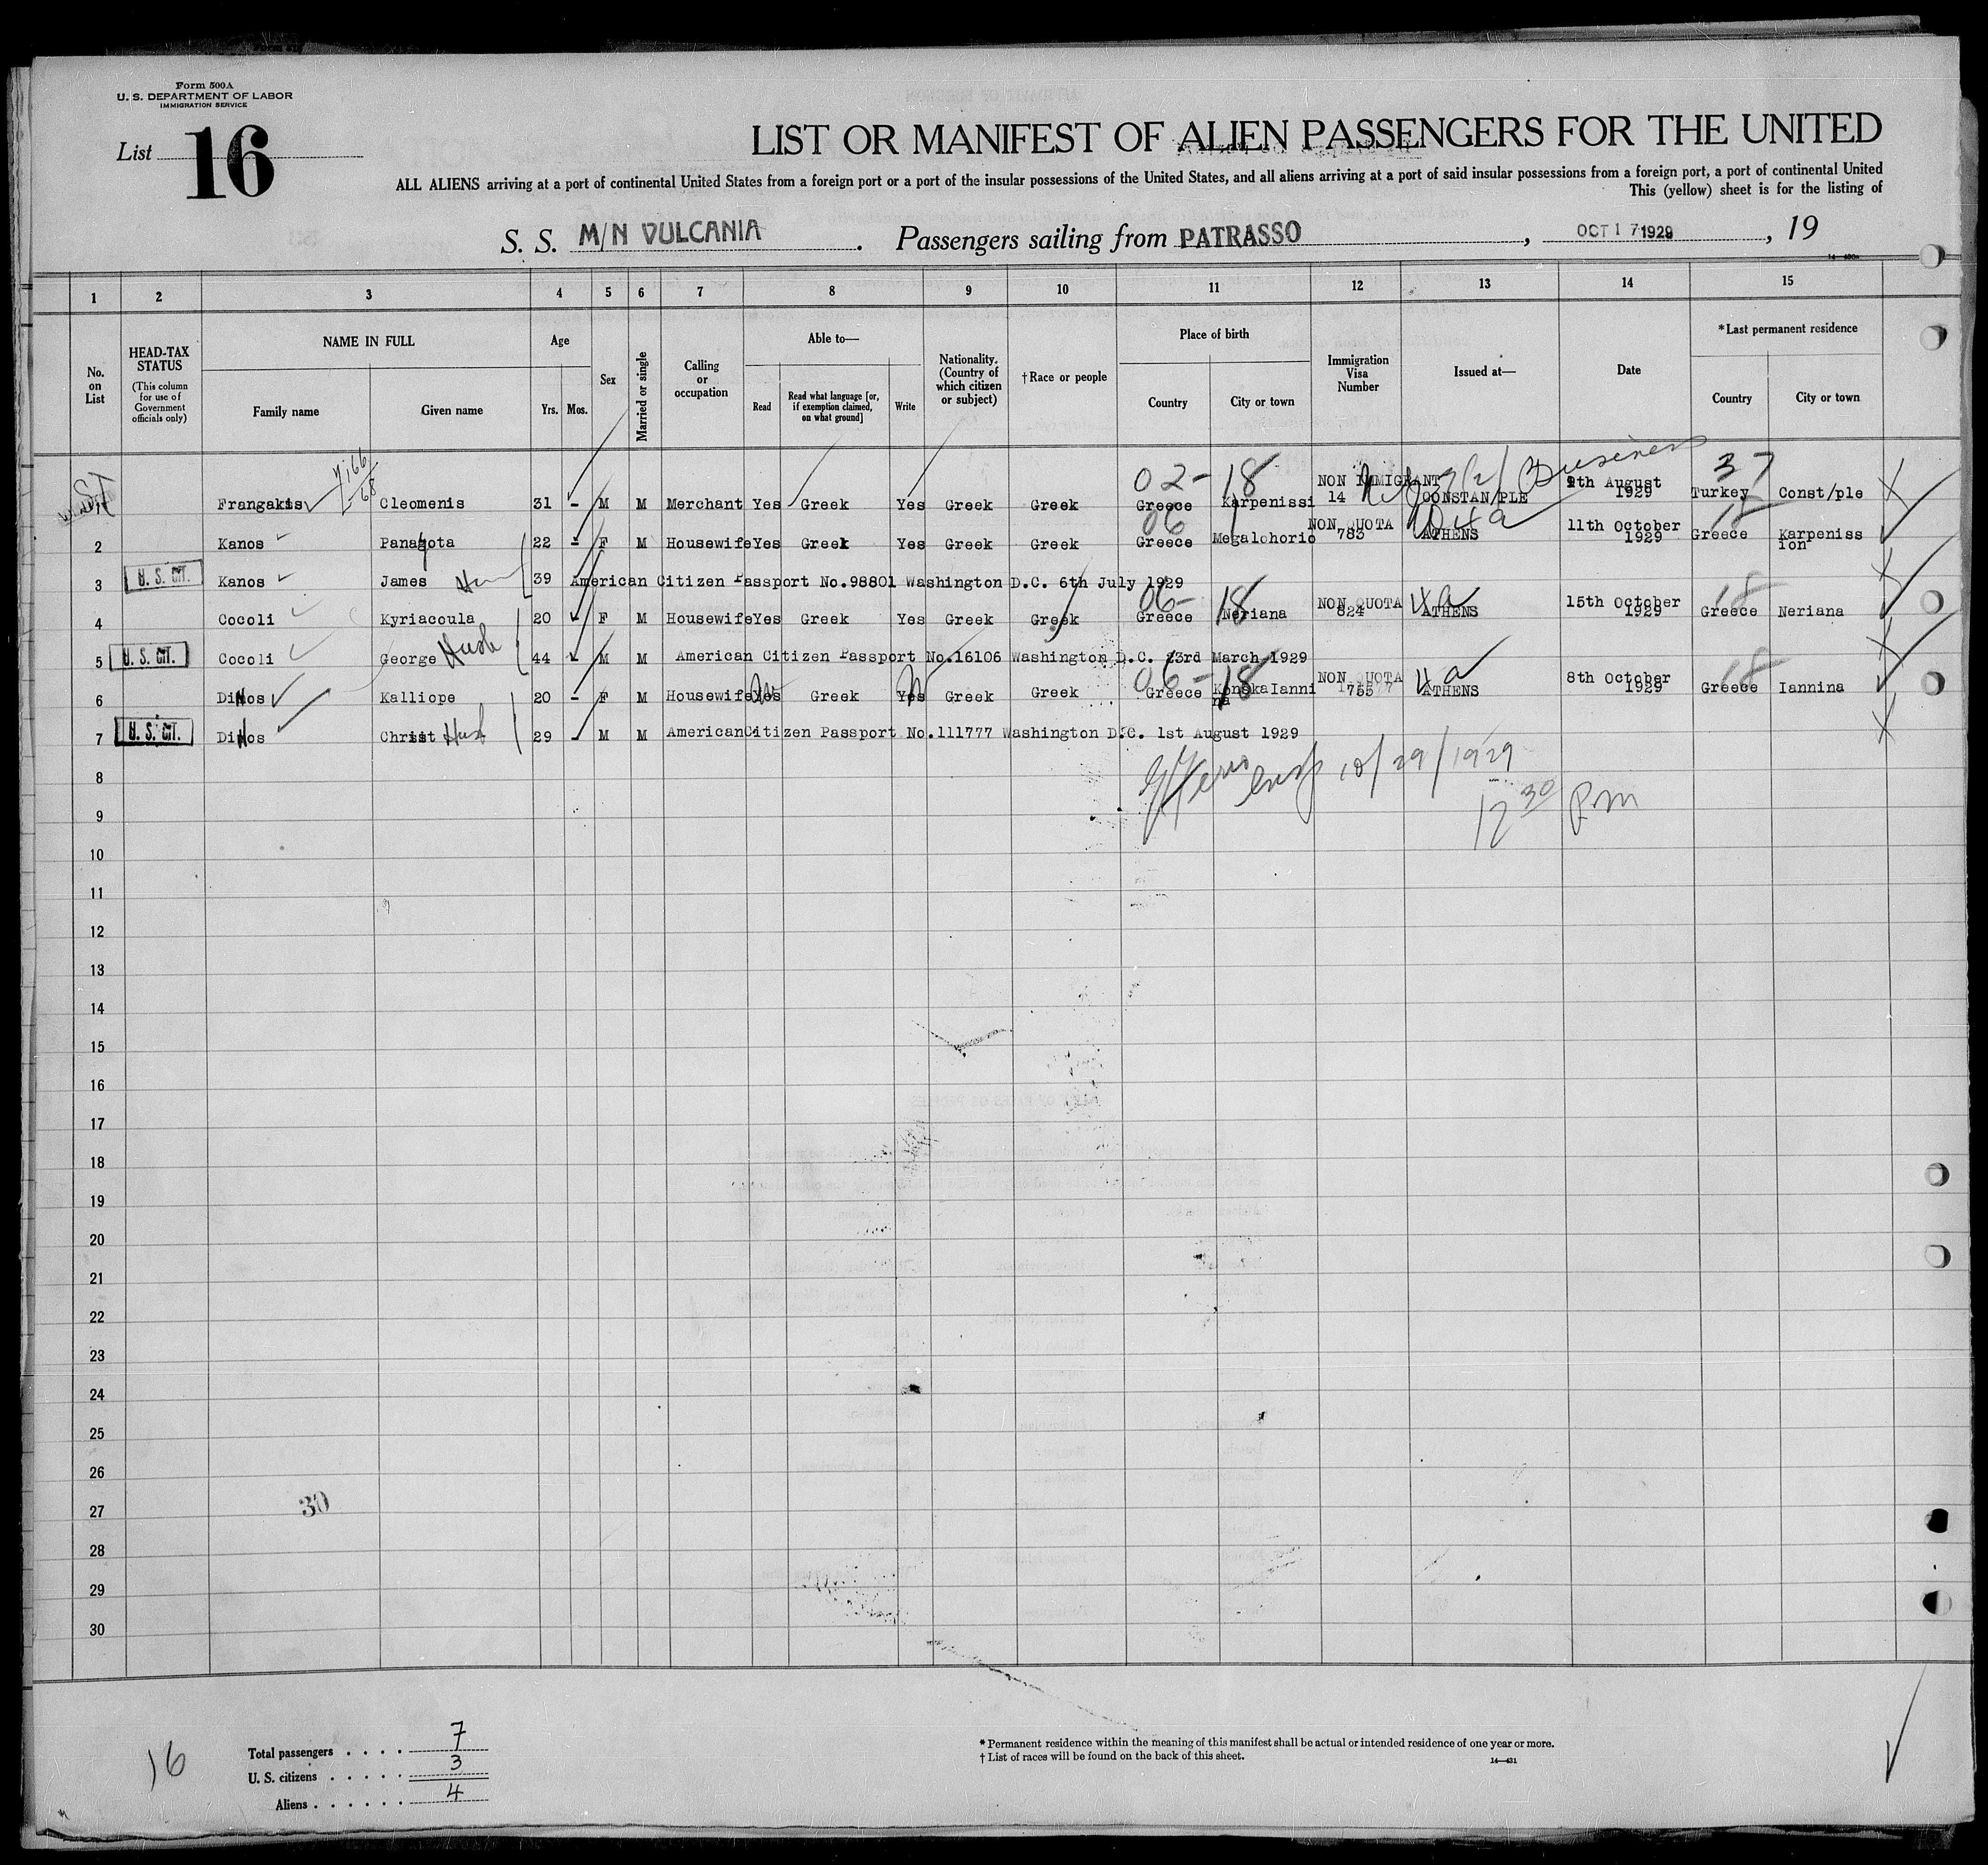 Form 500A
U. S. DEPARTMENT OF LABOR
IMMIGRATION SERVICE
List 16
LIST OR MANIFEST OF ALIEN PASSENGERS FOR THE UNITED
ALL ALIENS arriving at a port of continental United States from a foreign port or a port of the insular possessions of the United States, and all aliens arriving at a port of said insular possessions from a foreign port, a port of continental United
This (yellow) sheet is for the listing of
S. S. M/N VULCANIA. Passengers sailing from PATRASSO, OCT 17 1929, 19
1 2 3 4 5 6 7 8 9 10 11 12 13 14 15
No. on List
HEAD-TAX STATUS (This column for use of Government officials only)
NAME IN FULL
Family name Given name
Age
Yrs. Mos.
Sex
Married or single
Calling or occupation
Able to—
Read
Read what language [or, if exemption claimed, on what ground]
Write
Nationality. (Country of which citizen or subject)
†Race or people
Place of birth
Country City or town
Immigration Visa Number
Issued at—
Date
*Last permanent residence
Country City or town
02- 18 Business 37
NON IMMIGRANT 9th August
Frangakis Cleomenis 31 - M M Merchant Yes Greek Yes Greek Greek Greece Karpenissi 14 CONSTAN/PLE 1929 Turkey Const/ple
06 NON QUOTA 4a 11th October 18
2 Kanos Panagota 22 - F M Housewife Yes Greek Yes Greek Greek Greece Megalohorio 783 ATHENS 1929 Greece Karpenission
3 U. S. CIT. Kanos James 39 American Citizen Passport No.98801 Washington D.C. 6th July 1929
06- 18 NON QUOTA 4a 15th October 18
4 Cocoli Kyriacoula 20 F M Housewife Yes Greek Yes Greek Greek Greece Neriana 824 ATHENS 1929 Greece Neriana
5 U. S. CIT. Cocoli George Husb 44 M M American Citizen Passport No.16106 Washington D.C. 23rd March 1929
06- 18 NON QUOTA 4a 8th October 18
6 Kalliope 20 - F M Housewife Yes Greek Yes Greek Greek Greece 755 ATHENS 1929 Greece Iannina
7 U. S. CIT. Christ Husb 29 - M M American Citizen Passport No.111777 Washington D.C. 1st August 1929
10/29/1929
8
12 30 PM
9
10
11
12
13
14
15
16
17
18
19
20
21
22
23
24
25
26
27 30
28
29
30
16
Total passengers . . . . 7
U. S. citizens . . . . . 3
Aliens . . . . . . 4
* Permanent residence within the meaning of this manifest shall be actual or intended residence of one year or more.
† List of races will be found on the back of this sheet. 14—431